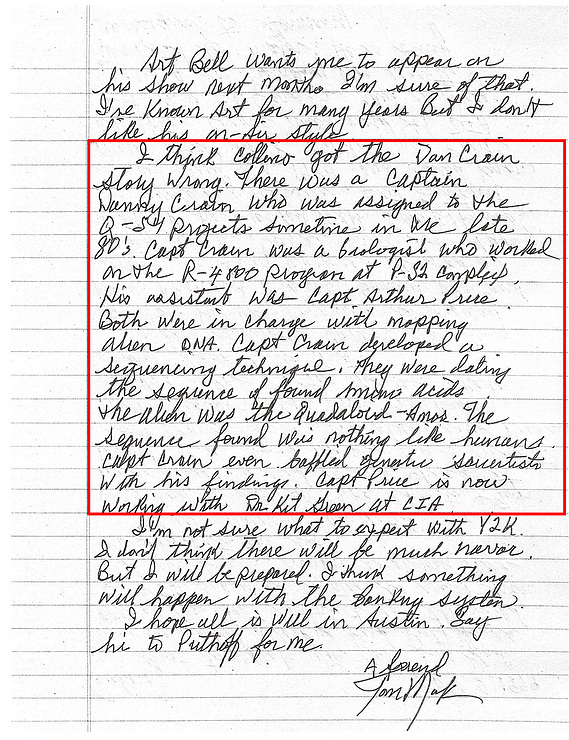 Art Bell wants me to appear on
his show next month. I'm sure of that.
I've known Art for many years But I don't
like his on-air style
I think Collins got the Dan Crain
story wrong. There was a Captain
Danny Crain who was assigned to the
Projects sometime in the late
80's. Capt Crain was a biologist who worked
on the R-4800 program at P-32 complex.
His assistant was Capt Arthur Price
Both were in charge with mapping
alien DNA. Capt Crain developed a
sequencing technique. They were dating
the sequence of found amino acids.
the alien was the Quadaloid-Amos. The
sequence found was nothing like humans.
Capt Crain even baffled genetic scientists
with his findings. Capt Price is now
working with Dr. Kit Green at CIA.
I'm not sure what to expect with Y2K.
I don't think there will be much
But I will be prepared. I think something
will happen with the Banking system.
I hope all is well in Austin. Say
hi to Puthoff for me.
A friend